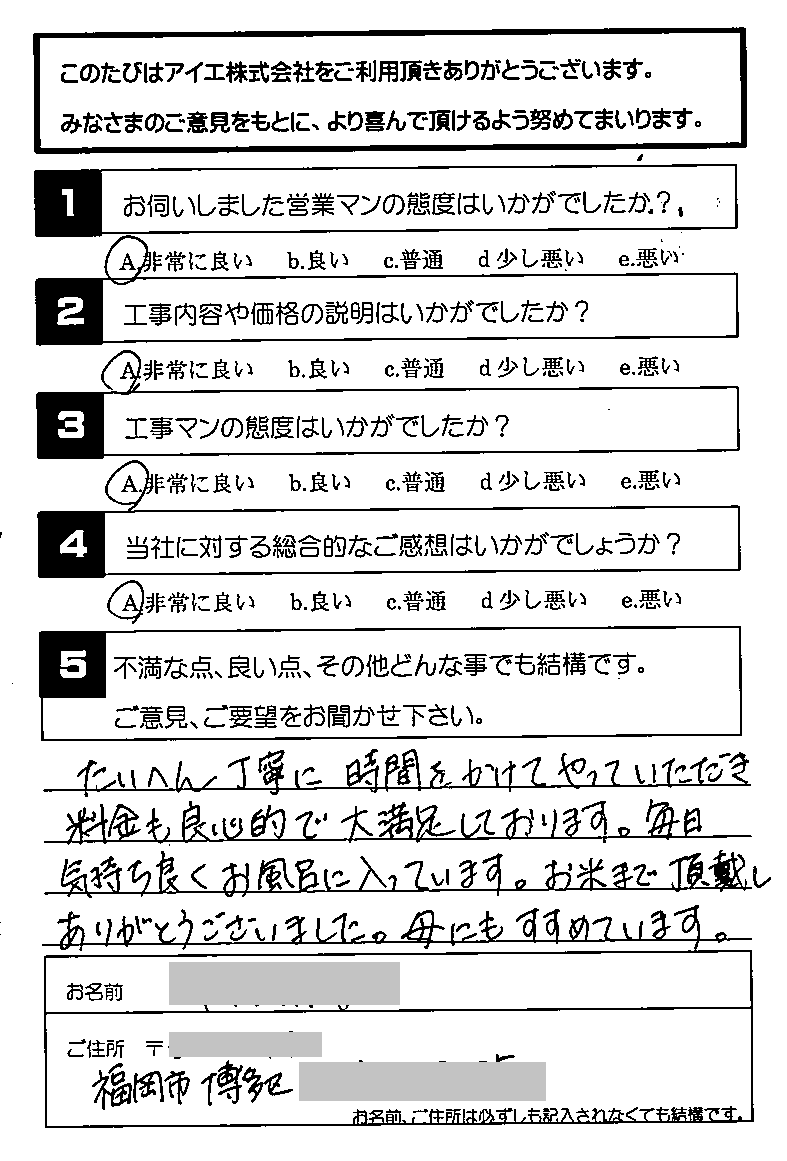 このたびはアイエ株式会社をご利用頂きありがとうございます。
みなさまのご意見をもとに、より喜んで頂けるよう努めてまいります。
1 お伺いしました営業マンの態度はいかがでしたか?
A.非常に良い b.良い c.普通 d 少し悪い e.悪い
2 工事内容や価格の説明はいかがでしたか?
A.非常に良い b.良い c.普通 d 少し悪い e.悪い
3 工事マンの態度はいかがでしたか?
A.非常に良い b.良い c.普通 d 少し悪い e.悪い
4 当社に対する総合的なご感想はいかがでしょうか?
A.非常に良い b.良い c.普通 d 少し悪い e.悪い
5 不満な点、良い点、その他どんな事でも結構です。
ご意見、ご要望をお聞かせ下さい。
たいへん丁寧に時間をかけてやっていただき
料金も良心的で大満足しております。毎日
気持ち良くお風呂に入っています。お米まで頂戴し
ありがとうございました。母にもすすめています。
お名前
ご住所 〒
福岡市博多区
お名前、ご住所は必ずしも記入されなくても結構です。